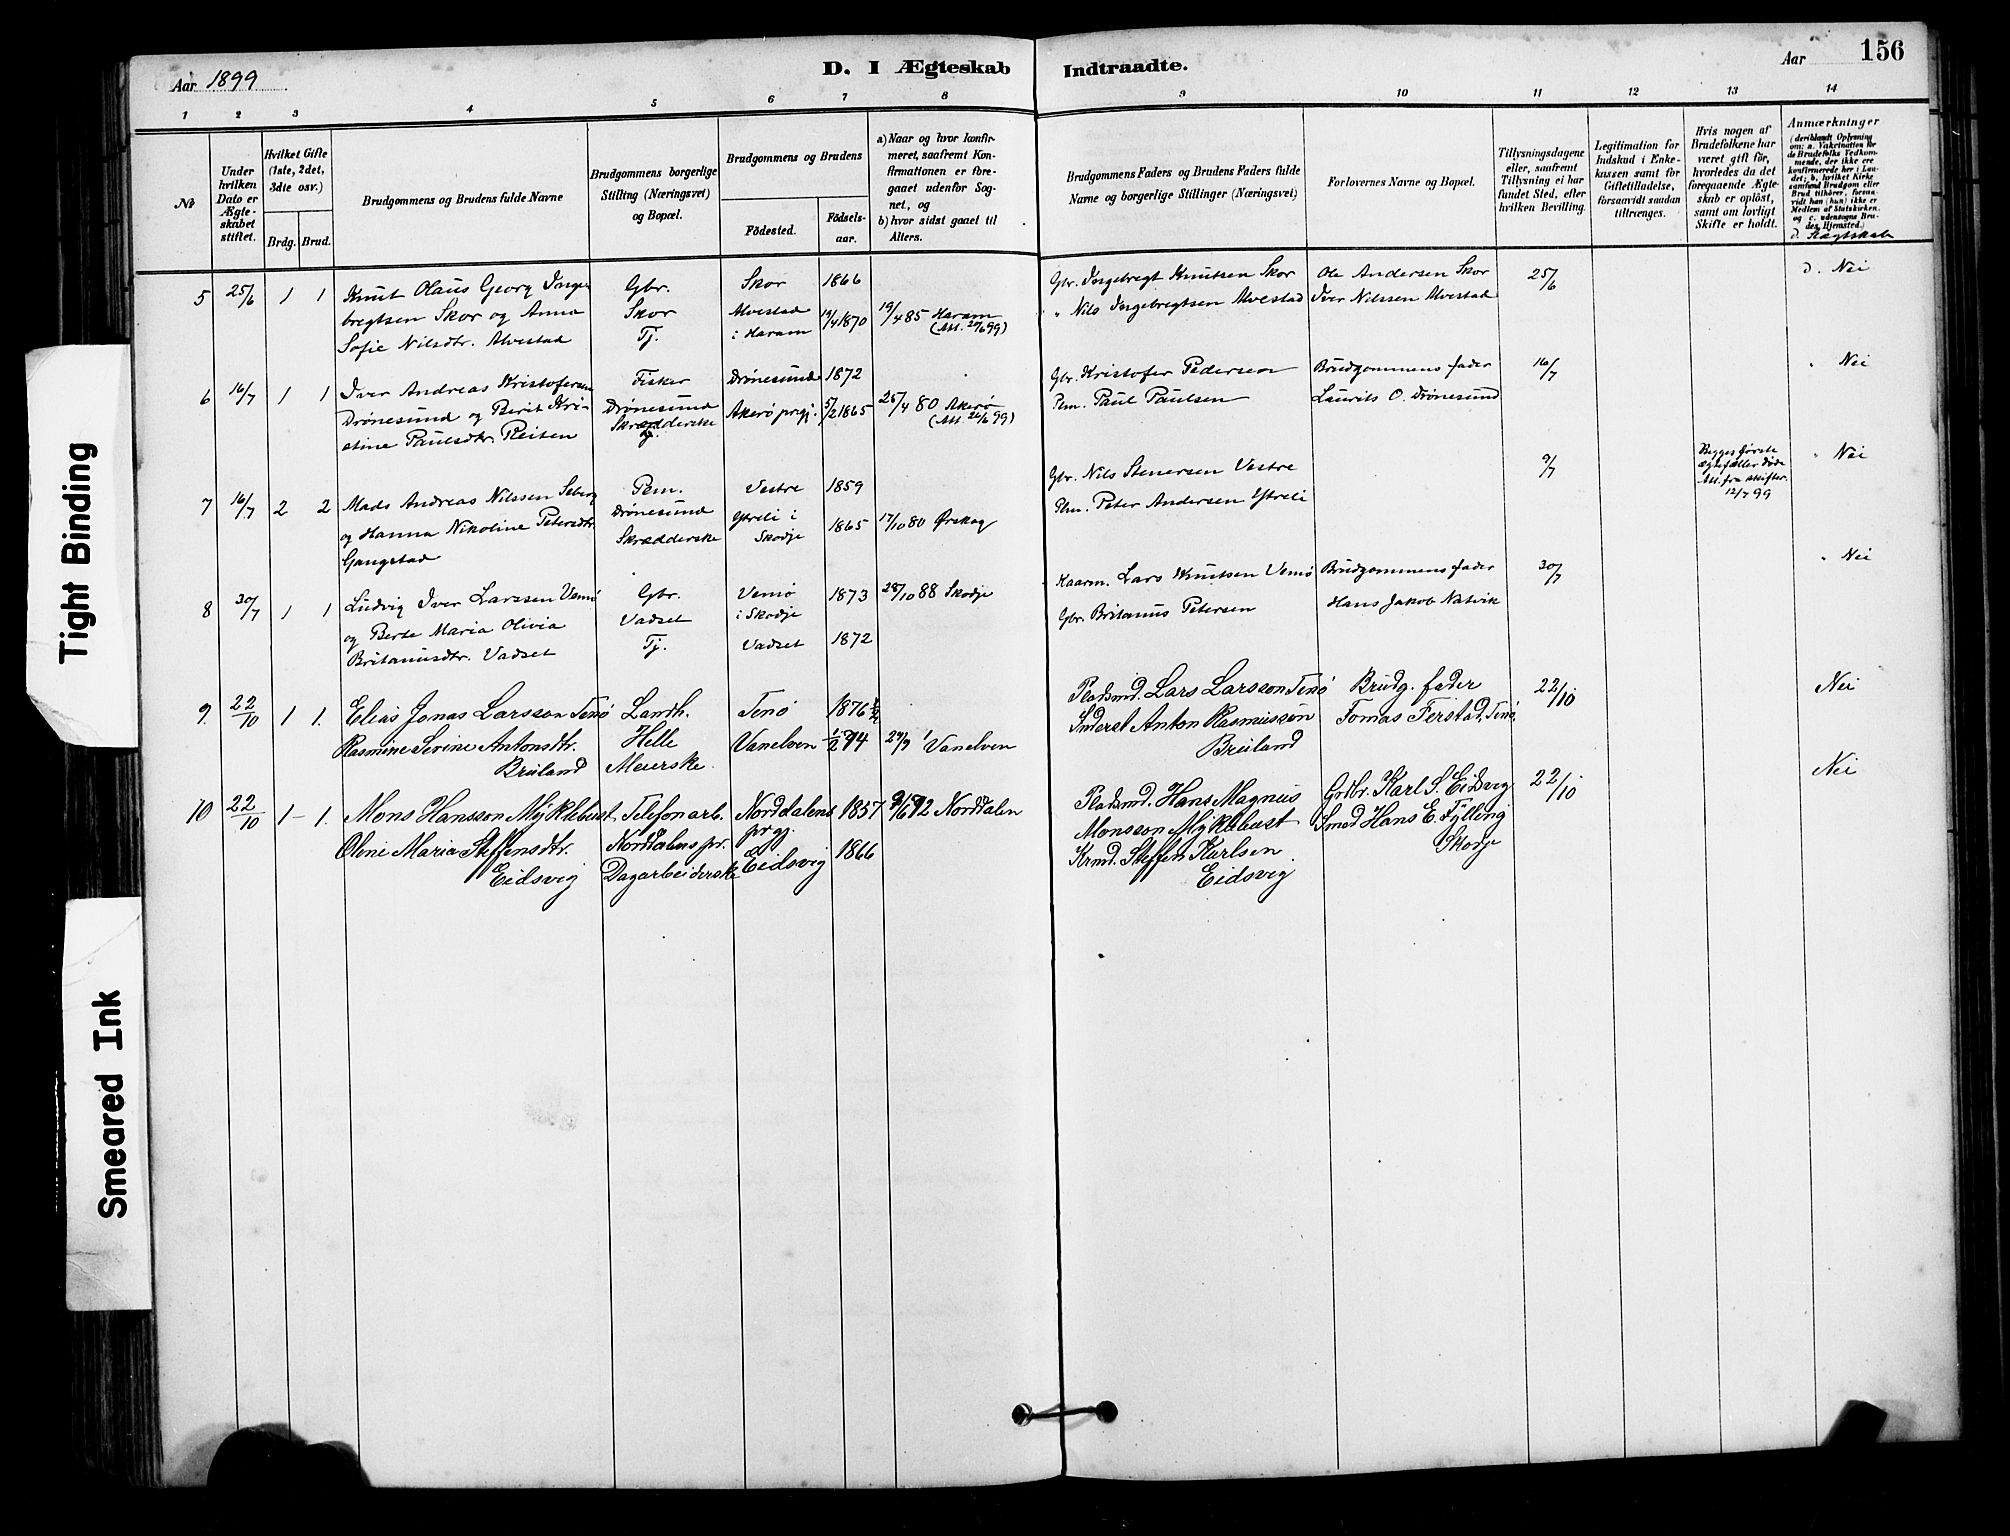 Tight Binding
Smeared Ink
156
Aar 1899
D. I Ægteskab Indtraadte.
Aar
1 2 3 4 5 6 7 8 9 10 11 12 13 14
No
Under hvilken Dato er Ægteskabet stiftet.
Hvilket Gifte (1ste, 2det, 3die osv.)
Brdg. Brud.
Brudgommens og Brudens fulde Navne
Brudgommens borgerlige Stilling (Næringsvei) og Bopæl.
Brudgommens og Brudens
Födested.
Födselsaar.
a) Naar og hvor konfirmeret, saafremt Konfirmationen er foregaaet udenfor Sognet, og
b) hvor sidst gaaet til Alters.
Brudgommens Faders og Brudens Faders fulde Navne og borgerlige Stillinger (Næringsvei)
Forlovernes Navne og Bopæl.
Tillysningsdagene eller, saafremt Tillysning ei har fundet Sted, efter hvilken Bevilling.
Legitimation for Indskud i Enkekassen samt for Giftetilladelse, forsaavidt saadan tiltrænges.
Hvis nogen af Brudefolkene har været gift för, hvorledes da det foregaaende Ægteskab er oplöst, samt om lovligt Skifte er holdt.
Anmærkninger
(deriblandt Oplysning om: a. Vakcination for de Brudefolks Vedkommende, der ikke ere konfirmerede her i Landet; b. hvilket Kirkesamfund Brudgom eller Brud tilhörer, forsaavidt han (hun) ikke er Medlem af Statskirken, og c. udensogns Brudes Hjemsted.)
d. Slægtskab
5 25/6 1 1 Knut Olaus Georg Inge- Gbr. Skor 1866
bregtsen Skor og Anna Skor Alvestad 19/4 1870 19/4 85 Haram
Sofie Nilsdtr. Alvestad Tj. i Haram (Att. 2/6 99)
Gbr. Ingebregt Knutsen Skor Ole Andersen Skor 25/6 d. Nei
" Nils Ingebregtsen Alvestad Iver Nilssen Alvestad
6 16/7 1 1 Iver Andreas Kristofersen Fisker Drönesund 1872
Drönesund og Berit Kri- Drönesund Akerö prgj. 5/2 1865 25/4 80 Akerö
stine Paulsdtr. Reiten Skrædderske (Att. 26/6 99)
Gbr. Kristofer Pedersen Brudgommens fader 16/7 " Nei
Pem. Paul Paulsen Laurits O. Drönesund
7 16/7 2 2 Mads Andreas Nilssen Pem. Vestre 1859
og Hanna Nikoline Petersdtr. Drönesund Ytreli i 1865 17/10 80 Ørskog
Gangstad Skrædderske Skodje
Gbr. Nils Stenersen Vestre 9/7 Begges förste " Nei
Pem. Peter Andersen Ytreli ægtefæller döde
Att. fra skifter.
12/7 99
8 30/7 1 1 Ludvig Iver Larssen Vemö Gbr. Vemö 1873 28/10 88 Skodje
og Berte Maria Olivia Vadset i Skodje
Britanusdtr. Vadset Tj. Vadset 1872
Kaarm. Lars Knutsen Vemö Brudgommens fader 30/7 " Nei
Gbr. Britanus Petersen Hans Jakob Natvik
9. 22/10 1 1. Elias Jonas Larsson Tenö Landh. Tenö 1876
Rasmine Sevine Antonsdtr. Helle Vanelven 74 Vanelven
Brüland Meierske.
Pladsmd. Lars Larsson Tenö Brudg. fader 22/10 Nei
Inderst Anton Rasmussen Tomas Ferstad, Tenö.
Brüland
10 22/10 1 – 1. Mons Hansson Myklebust Telefonarb. Norddalens 1857 9/6 72 Norddalen
Oline Maria Steffensdtr. Norddalens pr. prgj. 1866
Eidsvig Dagarbeiderske Eidsvig
Pladsmd. Hans Magnus Grdbr. Karl S. Eidsvig 22/10 Nei
Monsson Myklebust Smed Hans E. Fylling
Krmd. Steffen Karlsen Skodje
Eidsvig